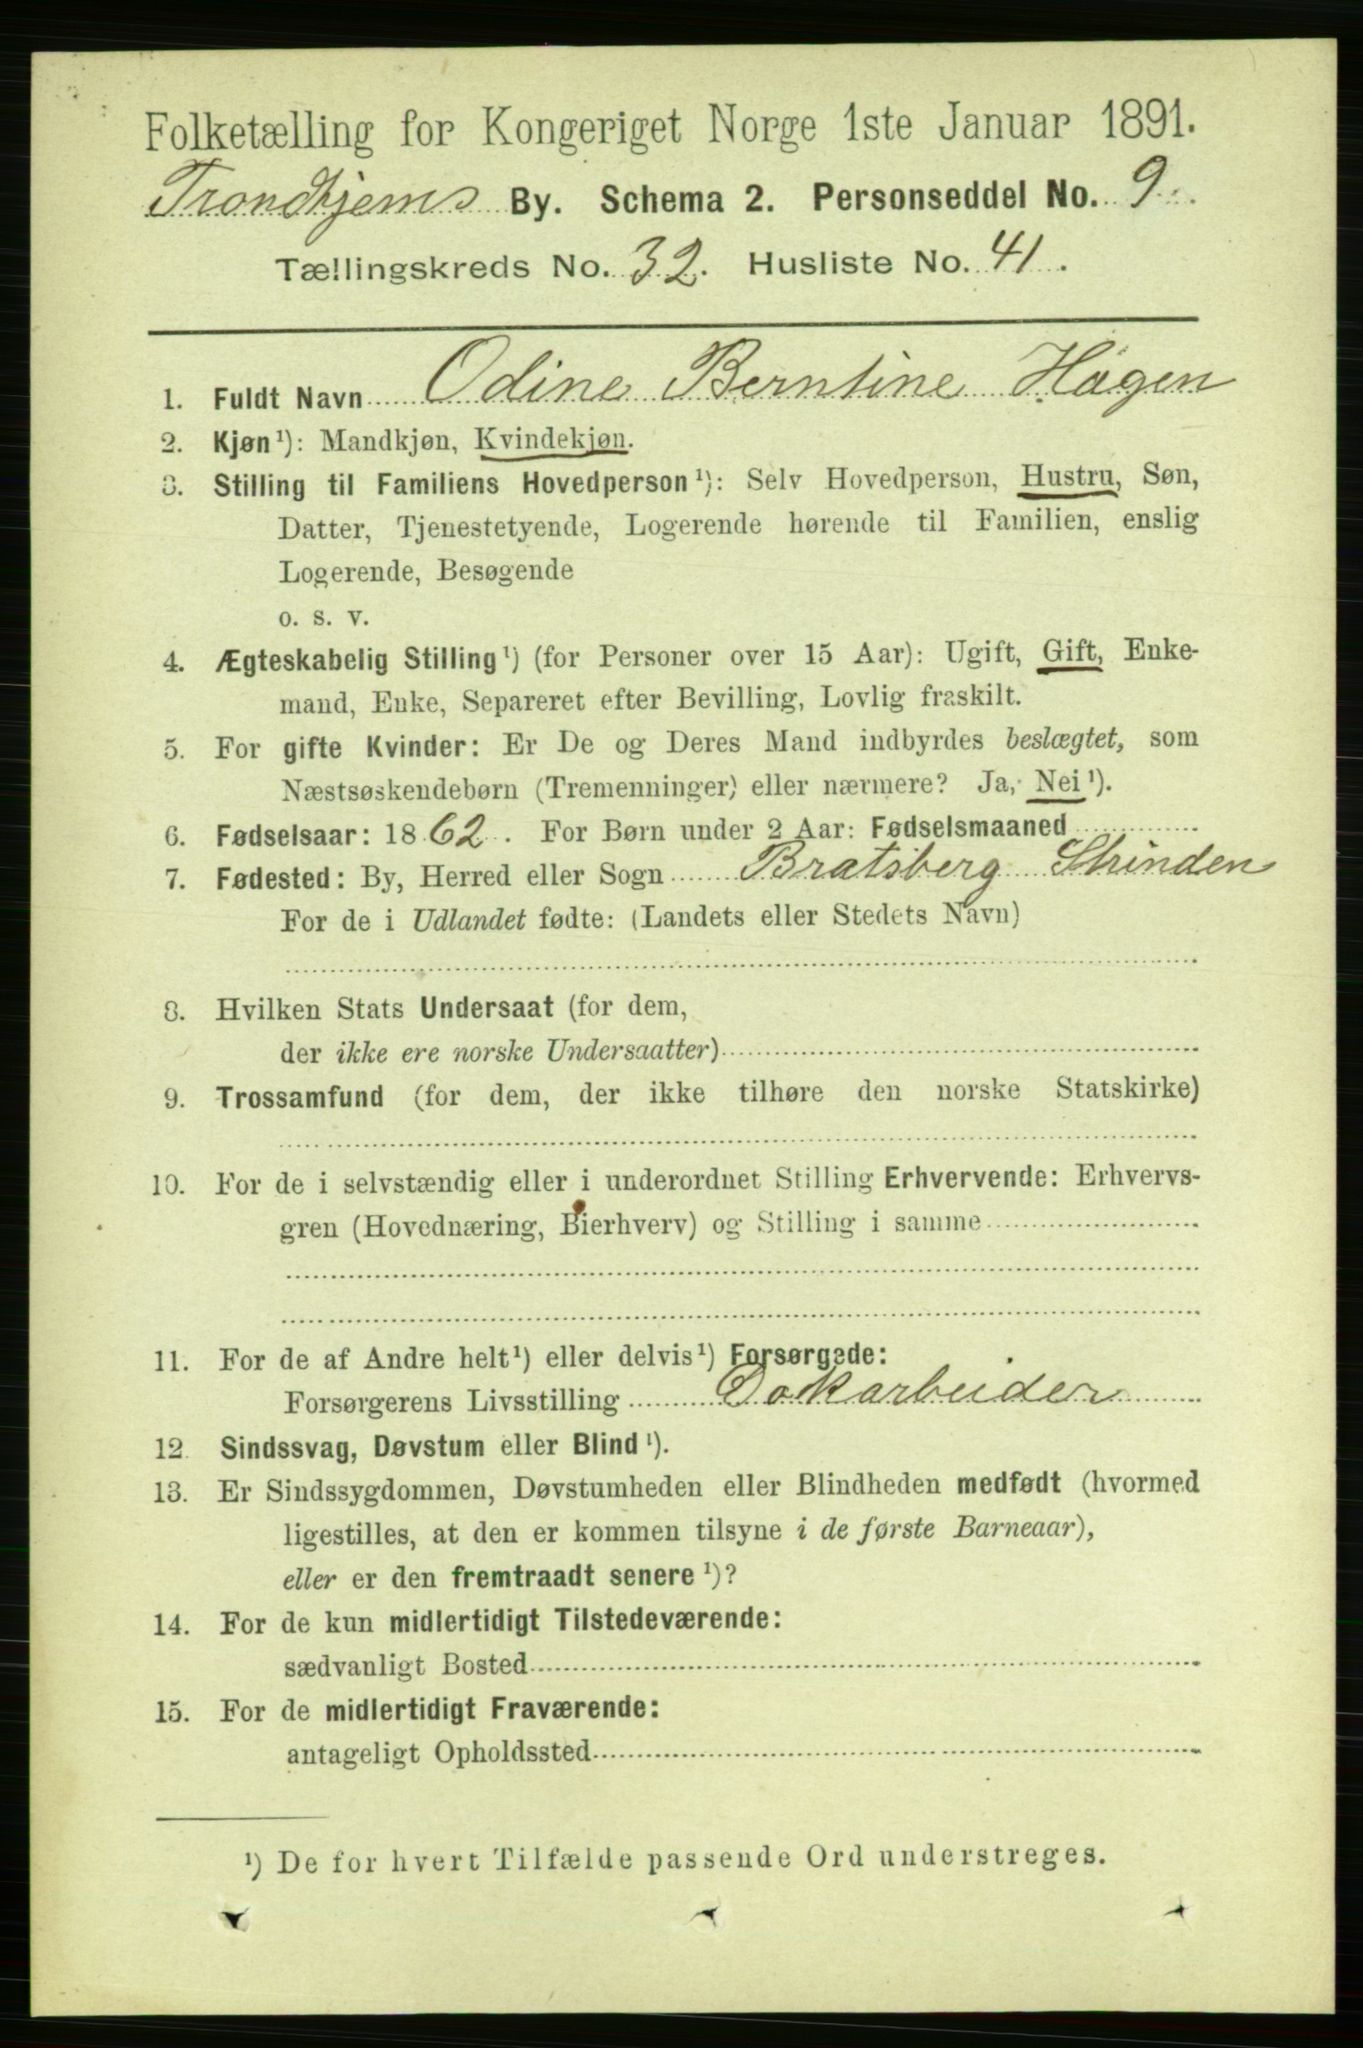 Folketælling for Kongeriget Norge 1ste Januar 1891.
Trondhjems By. Schema 2. Personseddel No. 9.
Tællingskreds No. 32. Husliste No. 41.
1. Fuldt Navn Odine Berntine Hagen
2. Kjøn¹): Mandkjøn, Kvindekjøn.
3. Stilling til Familiens Hovedperson¹): Selv Hovedperson, Hustru, Søn,
Datter, Tjenestetyende, Logerende hørende til Familien, enslig
Logerende, Besøgende
o. s. v.
4. Ægteskabelig Stilling¹) (for Personer over 15 Aar): Ugift, Gift, Enke-
mand, Enke, Separeret efter Bevilling, Lovlig fraskilt.
5. For gifte Kvinder: Er De og Deres Mand indbyrdes beslægtet, som
Næstsøskendebørn (Tremenninger) eller nærmere? Ja, Nei¹).
6. Fødselsaar: 1862. For Børn under 2 Aar: Fødselsmaaned
7. Fødested: By, Herred eller Sogn Bratsberg Strinden
For de i Udlandet fødte: (Landets eller Stedets Navn)
8. Hvilken Stats Undersaat (for dem,
der ikke ere norske Undersaatter)
9. Trossamfund (for dem, der ikke tilhøre den norske Statskirke)
10. For de i selvstændig eller i underordnet Stilling Erhvervende: Erhvervs-
gren (Hovednæring, Bierhverv) og Stilling i samme
11. For de af Andre helt¹) eller delvis¹) Forsørgede:
Forsørgerens Livsstilling Dokarbeider
12. Sindssvag, Døvstum eller Blind¹).
13. Er Sindssygdommen, Døvstumheden eller Blindheden medfødt (hvormed
ligestilles, at den er kommen tilsyne i de første Barneaar),
eller er den fremtraadt senere¹)?
14. For de kun midlertidigt Tilstedeværende:
sædvanligt Bosted
15. For de midlertidigt Fraværende:
antageligt Opholdssted
¹) De for hvert Tilfælde passende Ord understreges.